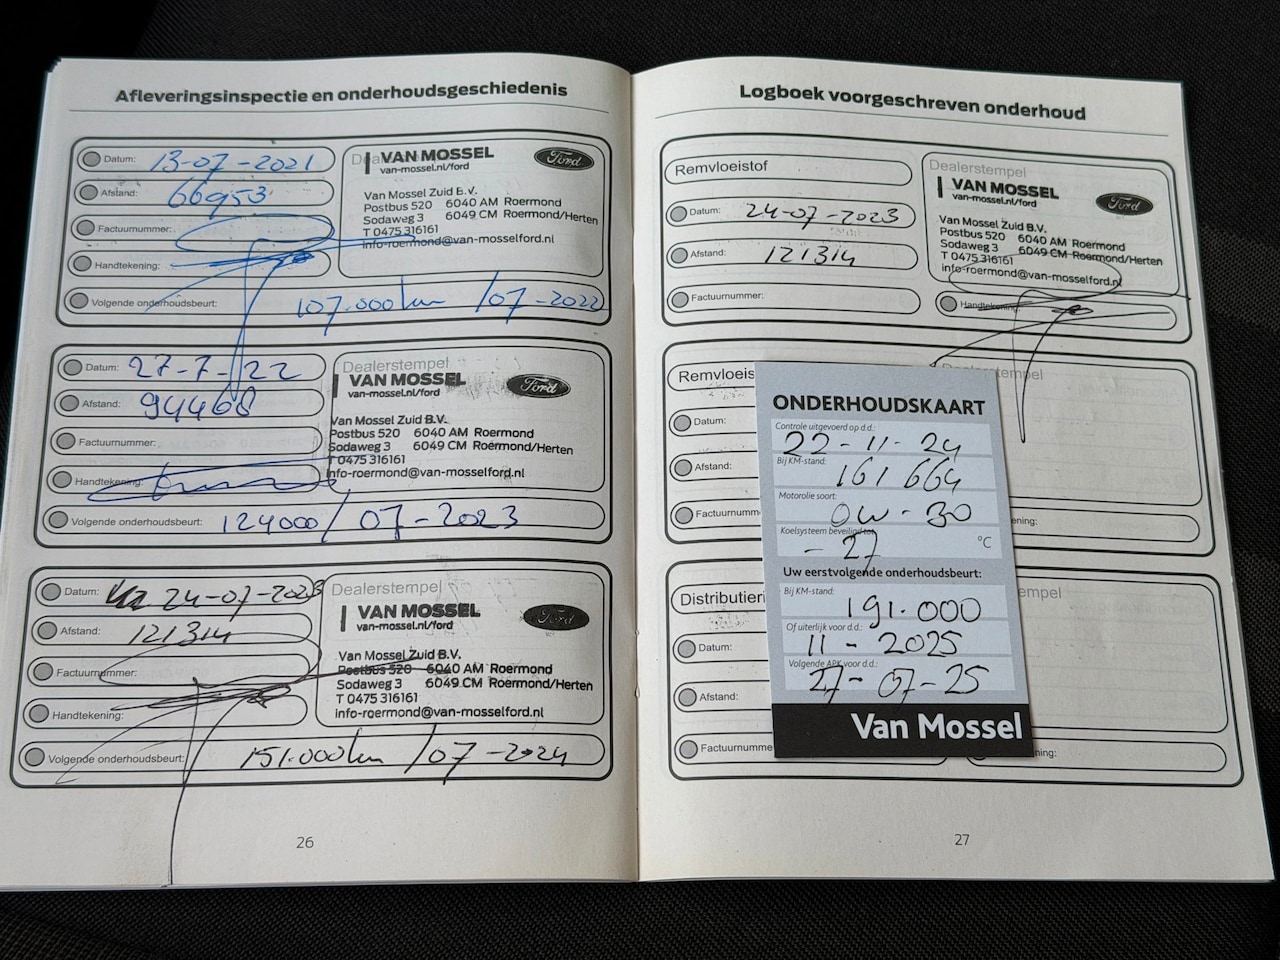 Afleveringsinspectie en onderhoudsgeschiedenis
Datum: 13-07-2021
Afstand: 66953
Factuurnummer:
Handtekening:
Volgende onderhoudsbeurt: 107.000 km /07-2022
VAN MOSSEL
van-mossel.nl/ford
Ford
Van Mossel Zuid B.V.
Postbus 520 6040 AM Roermond
Sodaweg 3 6049 CM Roermond/Herten
T 0475 316161
info-roermond@van-mosselford.nl
Datum: 27-7-22
Afstand: 94468
Factuurnummer:
Handtekening:
Volgende onderhoudsbeurt: 124000/ 07-2023
Dealerstempel
VAN MOSSEL
van-mossel.nl/ford
Ford
Van Mossel Zuid B.V.
Postbus 520 6040 AM Roermond
Sodaweg 3 6049 CM Roermond/Herten
T 0475 316161
info-roermond@van-mosselford.nl
Datum: 24-07-2023
Afstand: 121314
Factuurnummer:
Handtekening:
Volgende onderhoudsbeurt: 151.000km /07-2024
Dealerstempel
VAN MOSSEL
van-mossel.nl/ford
Ford
Van Mossel Zuid B.V.
Postbus 520 6040 AM Roermond
Sodaweg 3 6049 CM Roermond/Herten
T 0475 316161
info-roermond@van-mosselford.nl
26
Logboek voorgeschreven onderhoud
Remvloeistof
Datum: 24-07-2023
Afstand: 121314
Factuurnummer:
Dealerstempel
VAN MOSSEL
van-mossel.nl/ford
Ford
Van Mossel Zuid B.V.
Postbus 520 6040 AM Roermond
Sodaweg 3 6049 CM Roermond/Herten
T 0475 316161
info-roermond@van-mosselford.nl
Handtekening:
Remvloeis
Datum:
Afstand:
Factuurnumm
Dealerstempel
ening:
Distributieri
Datum:
Afstand:
Factuurnumme
empel
ning:
ONDERHOUDSKAART
Controle uitgevoerd op d.d.:
22-11-24
Bij KM-stand:
161 664
Motorolie soort:
0W-30
Koelsysteem beveiligd tot:
-27 °C
Uw eerstvolgende onderhoudsbeurt:
Bij KM-stand:
191.000
Of uiterlijk voor d.d.:
11-2025
Volgende APK voor d.d.:
27-07-25
Van Mossel
27